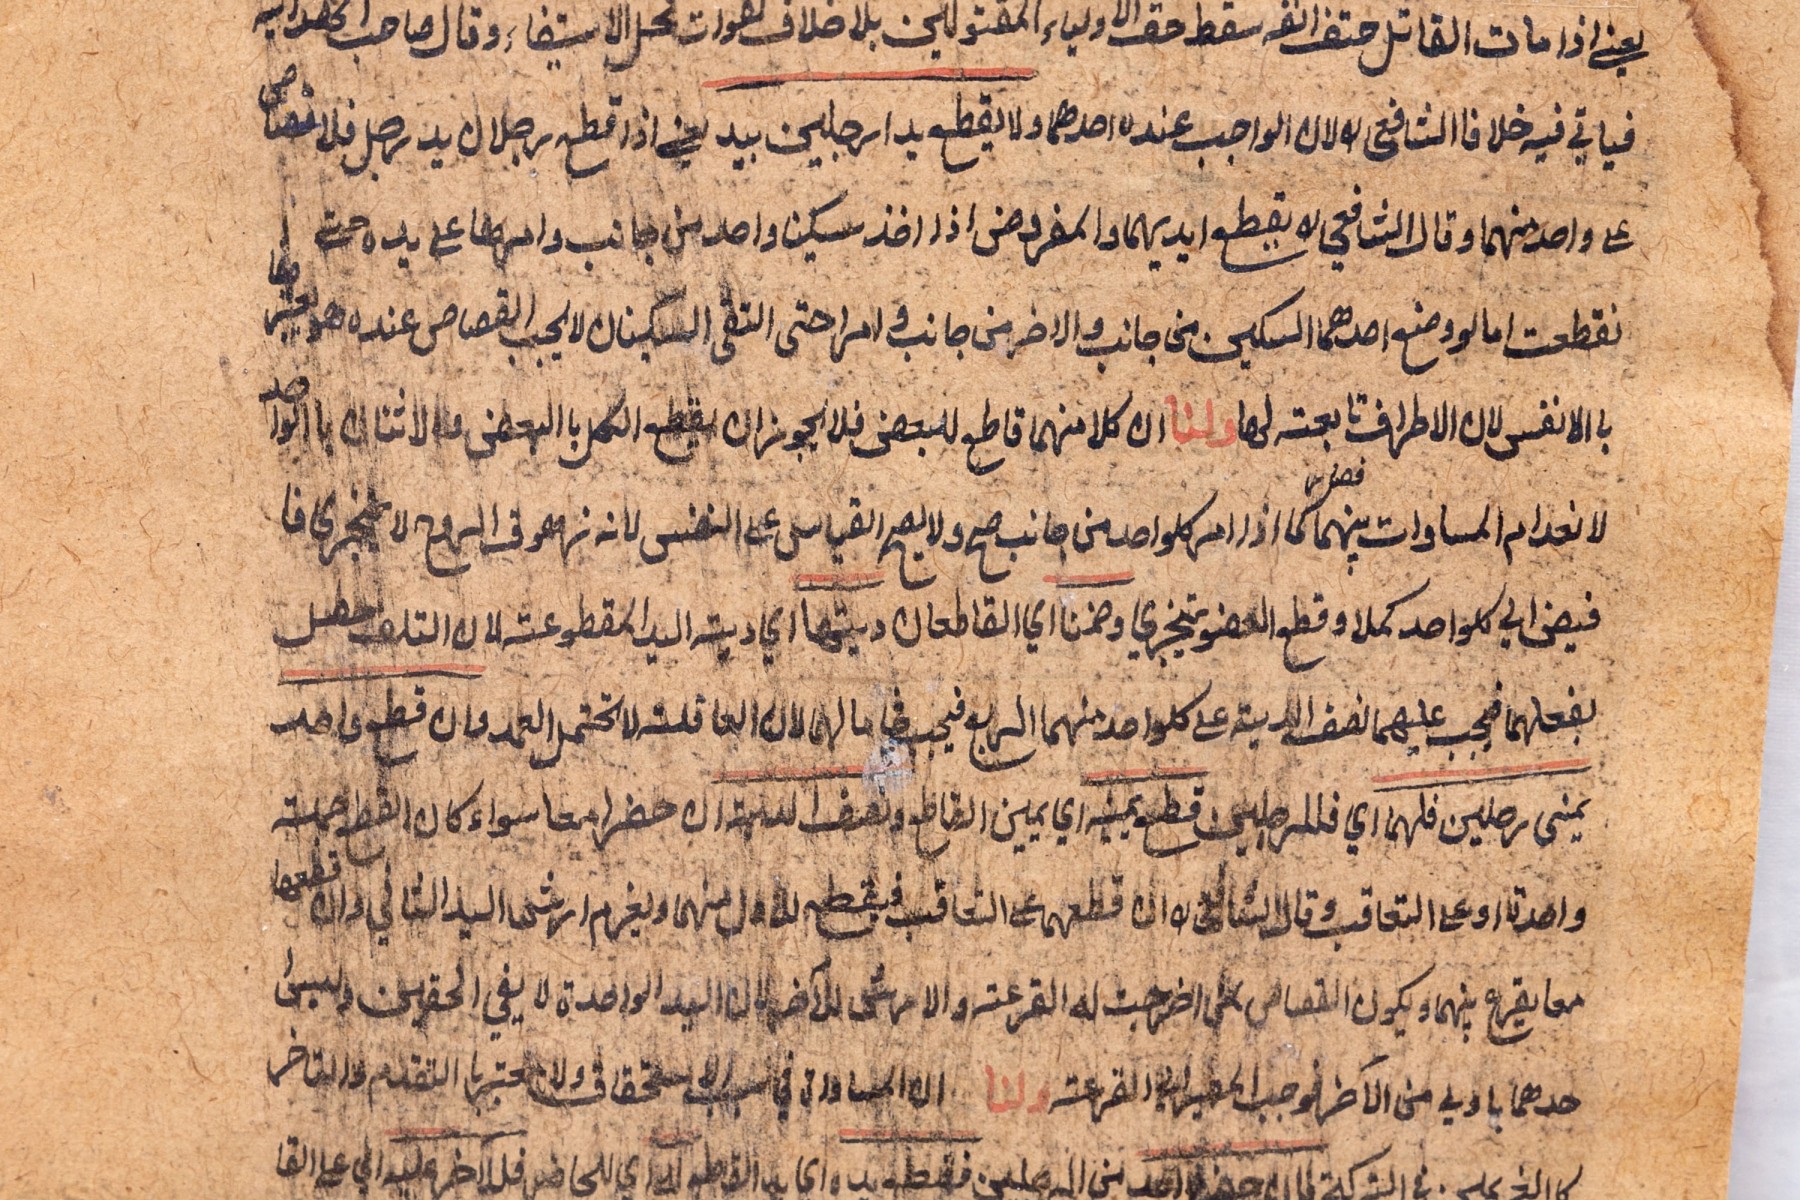 يعني اذا مات القاتل حتف انفه سقط حق الاولياء المقتولين بلا خلاف لفوات محل الاستيفاء وقال صاحب الهداية
فياتي فيه خلافا الشافعي له لان الواجب عنده احدهما ولا يقطع يدا رجلين بيد يعني اذا قطع رجلان يد رجل فلا قصاص
على واحد منهما وقال الشافعي له يقطع ايديهما والمفروض اذا اخذ سكينا واحد من جانب وامرها على يده حتى
نقطعت اما لو وضع احدهما السكين من جانب والاخر من جانب وامرا حتى التقى السكينان لا يجب القصاص عنده هو يعتبرها
بالانفس لان الاطراف تابعة لها ولنا ان كلا منهما قاطع للبعض فلا يجوز ان يقطع الكل بالبعض والاثنان بالواحد
لانعدام المساوات بينهما كما اذا امر كلواحد من جانب صح ولا يصح القياس على النفس لانه زهوق الروح لا يتجزي فا
فيضى الى كلواحد كملا وقطع العضو يتجزي وضمنا اي القاطعان ديتها اي دية اليد المقطوعة لان التلف حصل
بفعلهما فيجب عليهما نصف الدية على كلواحد منهما الربع فيجب في مالهما لان العاقلة لا تحتمل العمد وان قطع واحد
يمينى رجلين فلهما اي فللرجلين قطع يمينه اي يمين القاطع ونصف الدية ان حضرا معا سواء كان القطع جملة
واحدة او على التعاقب وقال الشافعي له ان قطعهما على التعاقب فيقطع للاول منهما ويغرم ارش اليد الثاني وان قطعها
معا يقرع بينهما ويكون القصاص لمن اخرجت له القرعة والارش للاخر لان اليد الواحدة لا يفي الحقين وليس
حدهما باولى من الاخر فوجب المصير الى القرعة ولنا ان المساواة في سبب الاستحقاق ولا معتبر بالتقدم والتاخر